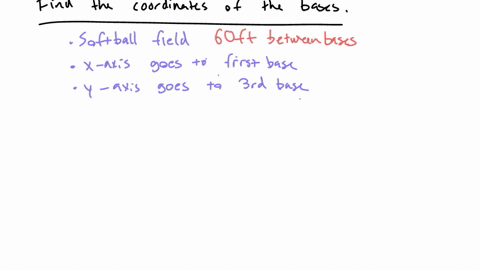 Find the coordinates of the bases.
• Softball field 60ft between bases
• x-axis goes to first base
• y-axis goes to 3rd base